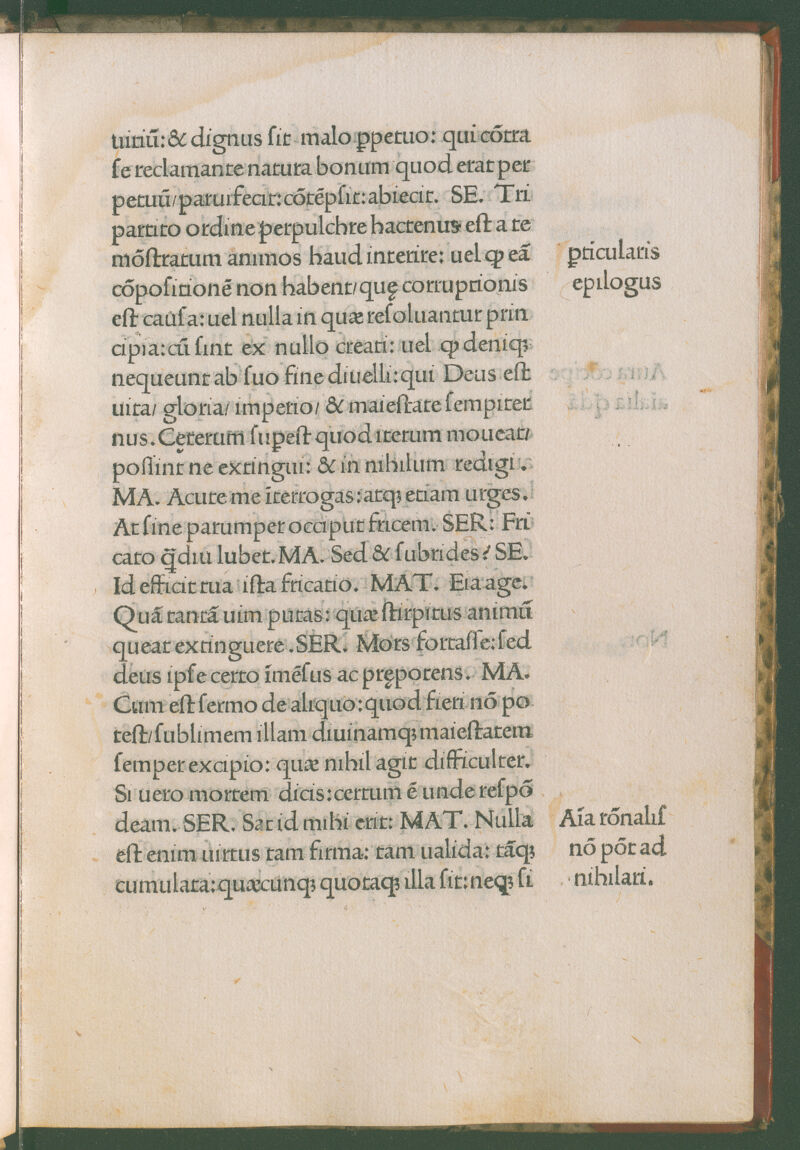 tuitiũ: & dignus ſit malo ꝑpetuo: qui cõtra
ſe reclamante natura bonum quod erat per
petuũ/paruifecit: cõtẽpſit: abiecit. SE. Tri
partito ordine perpulchre hactenus eſt a te
mõſtratum animos haud interire: uel ꝙ eã
cõpoſitionẽ non habent/quę corruptionis
eſt cauſa: uel nulla in quæ reſoluantur prin
cipia: cũ ſint ex nullo creati: uel ꝙ deniqꝫ
nequeunt ab ſuo fine diuelli: qui Deus eſt
uita/ gloria/ imperio/ & maieſtate ſempiter
nus. Cęterum ſuꝑeſt quod iterum moueat/
poſſint ne extingui: & in nihilum redigi.
MA. Acute me ĩterrogas: atqꝫ etiam urges.
At ſine parumper occiput fricem. SER: Fri
cato q̃diu lubet. MA. Sed & ſubrides? SE.
Id efficit tua iſta fricatio. MAT. Eia age.
Quã tantã uim putas: quæ ſtirpitus animũ
queat extinguere. SER. Mors fortaſſe: ſed
deus ipſe certo ĩmẽſus ac prępotens. MA.
Cum eſt ſermo de aliquo: quod fieri nõ po
teſt/ſublimem illam diuinamqꝫ maieſtatem
ſemper excipio: quæ nihil agit difficulter.
Si uero mortem dicis: certum ẽ unde reſpõ
deam. SER. Sat id mihi erit: MAT. Nulla
eſt enim uirtus tam firma: tam ualida: tãqꝫ
cumulata: quæcunqꝫ quotaqꝫ illa ſit: neqꝫ ſi
ꝑticularis
epilogus
Aĩa rõnaliſ
nõ põt ad
nihilari.